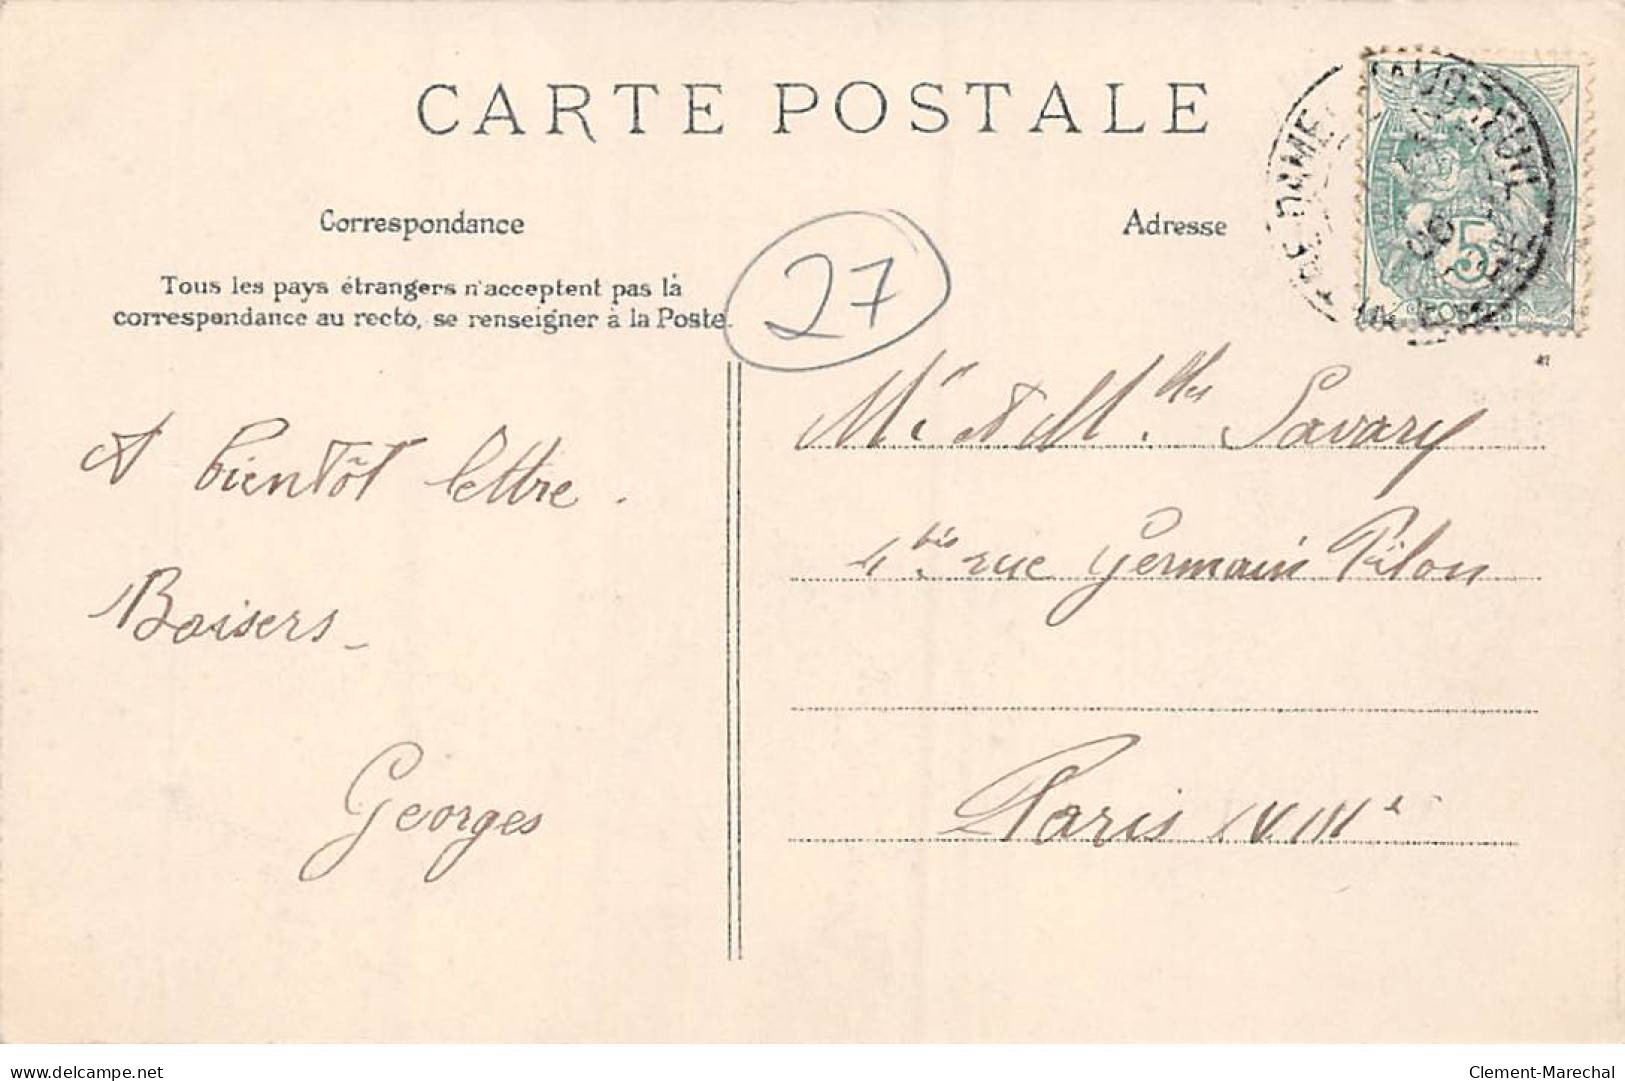 CARTE POSTALE
Correspondance
Adresse
Tous les pays étrangers n'acceptent pas la
correspondance au recto, se renseigner à la Poste.
27
5
POSTES
A bientôt lettre.
Baisers_
Georges
et M.lles Savary
4 bis rue Germain Pilon
Paris XVIIIe
delcampe.net
Clement-Marechal